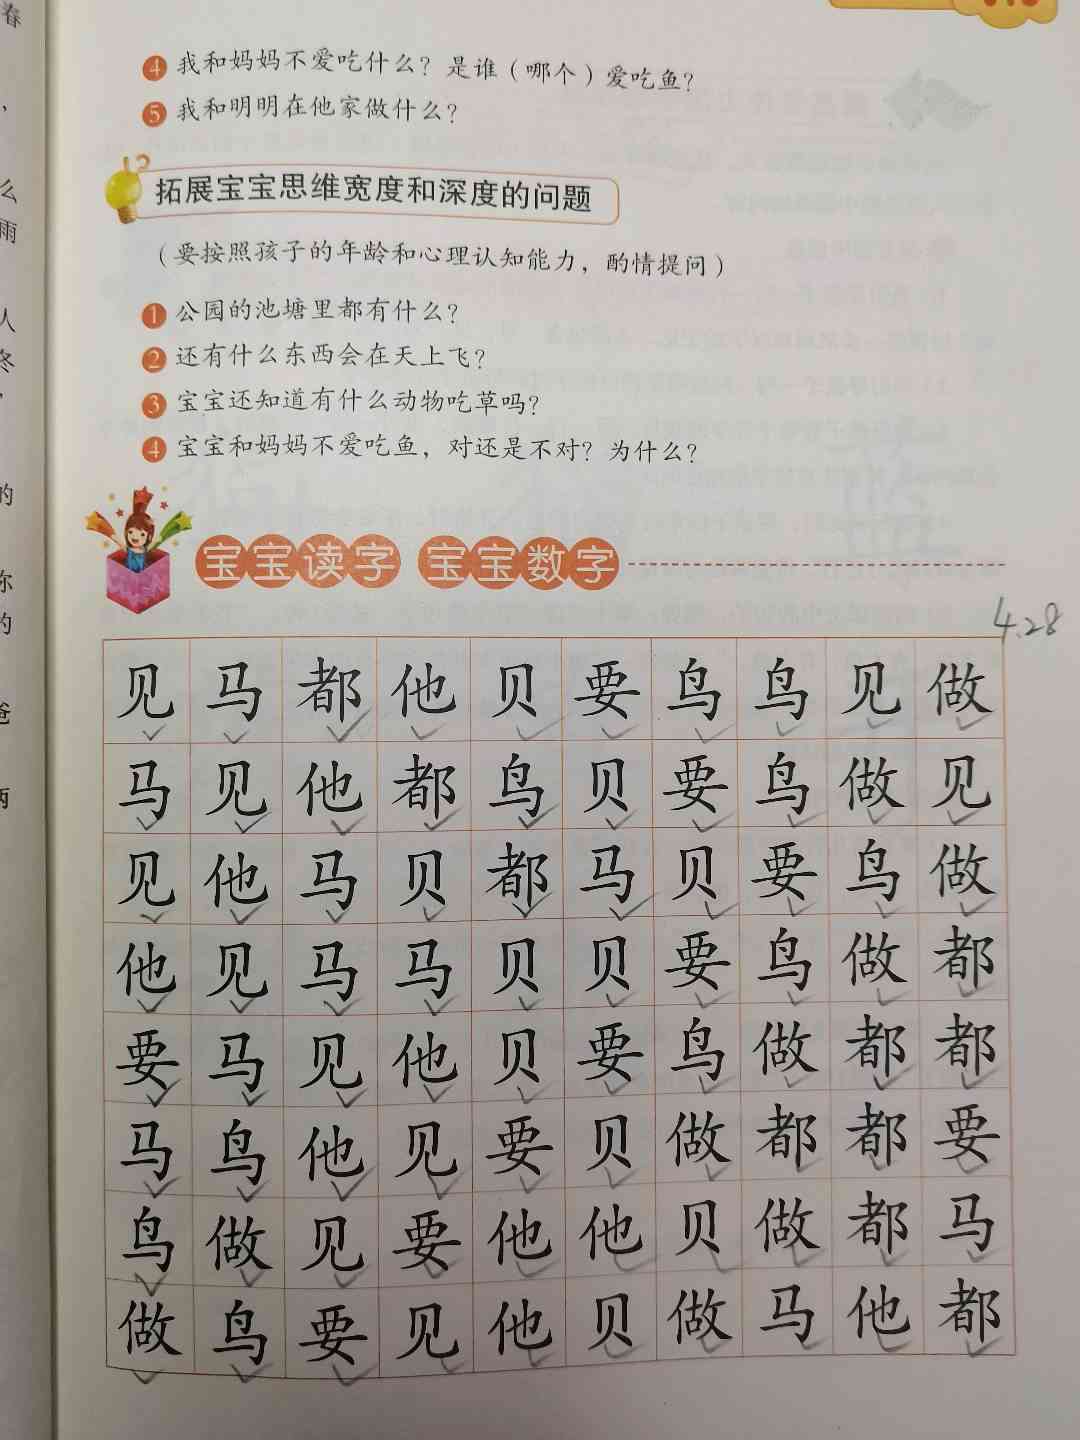 春
,
么
雨
人
冬
的
你
的
爸
两
④ 我和妈妈不爱吃什么？是谁（哪个）爱吃鱼？
⑤ 我和明明在他家做什么？
拓展宝宝思维宽度和深度的问题
（要按照孩子的年龄和心理认知能力，酌情提问）
① 公园的池塘里都有什么？
② 还有什么东西会在天上飞？
③ 宝宝还知道有什么动物吃草吗？
④ 宝宝和妈妈不爱吃鱼，对还是不对？为什么？
宝宝读字 宝宝数字
4.28
见 马 都 他 贝 要 鸟 鸟 见 做
马 见 他 都 鸟 贝 要 鸟 做 见
见 他 马 贝 都 马 贝 要 鸟 做
他 见 马 马 贝 贝 要 鸟 做 都
要 马 见 他 贝 要 鸟 做 都 都
马 鸟 他 见 要 贝 做 都 都 要
鸟 做 见 要 他 他 贝 做 都 马
做 鸟 要 见 他 贝 做 马 他 都